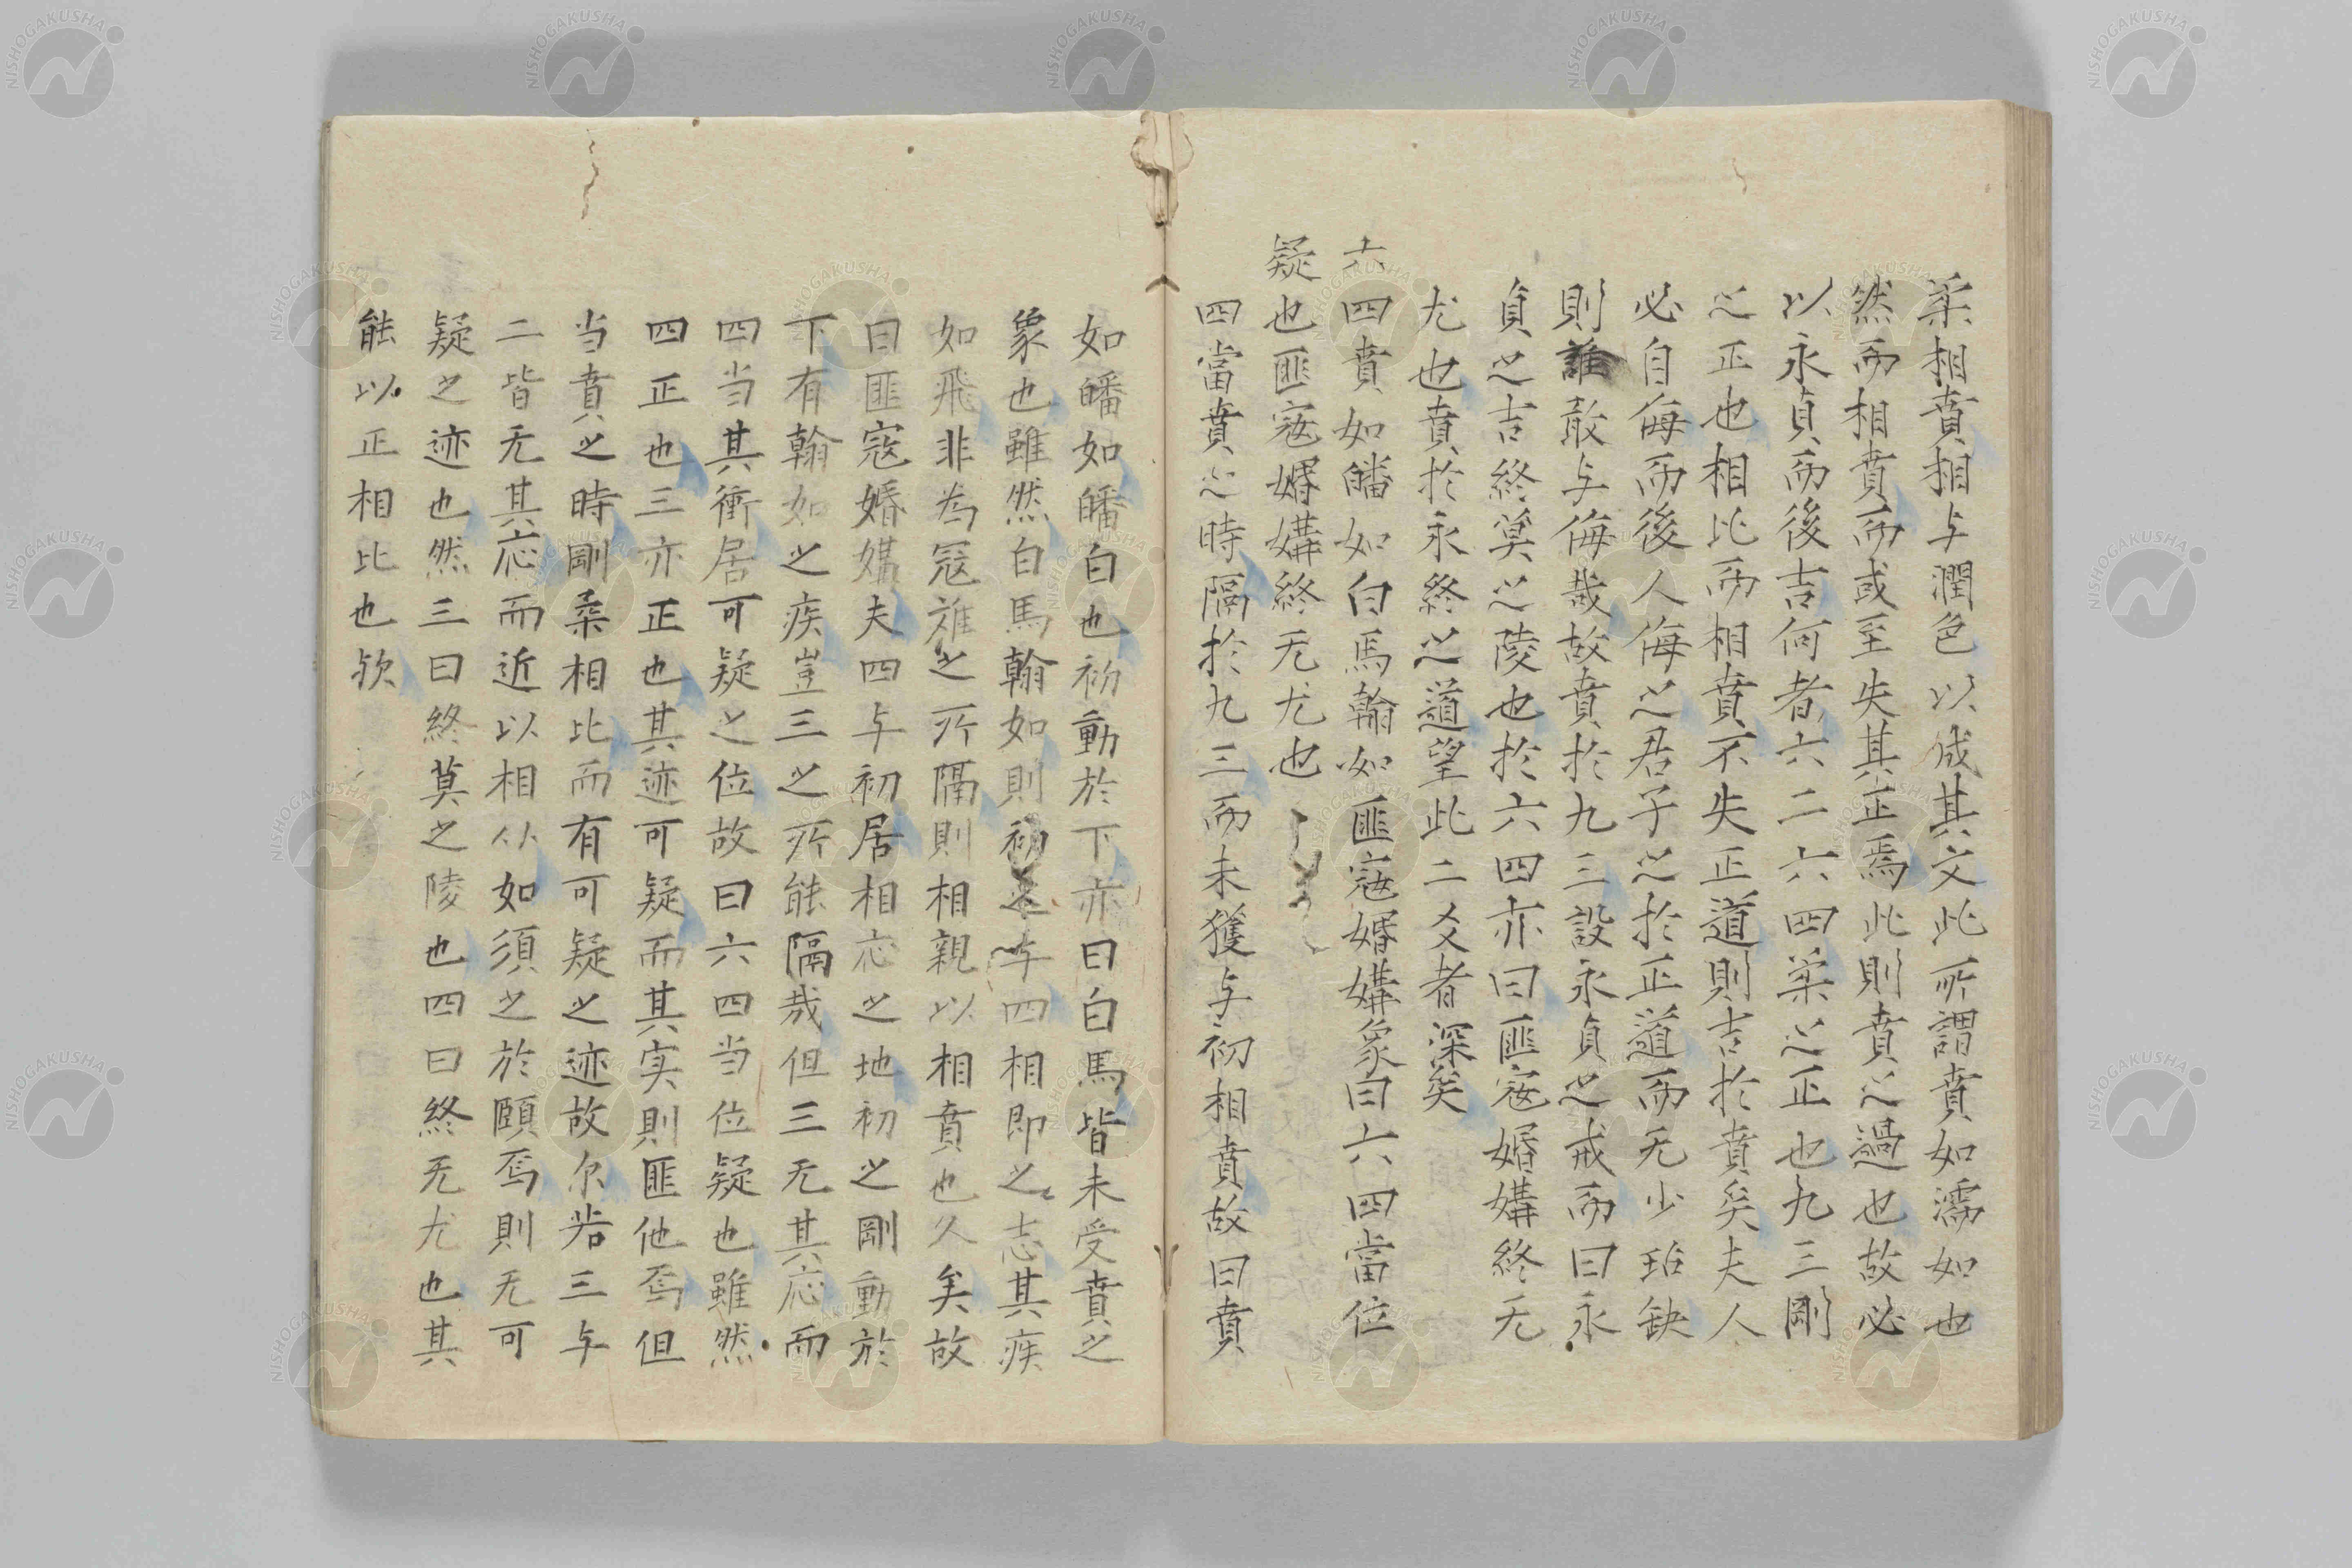 柔相賁相与潤色以成其文此所謂賁如濡如也
然而相賁而或至失其正焉此則賁之過也故必
以永貞而後吉何者六二六四柔之正也九三剛
之正也相比而相賁不失正道則吉於賁矣夫人
必自侮而後人侮之君子之於正道而无少玷缺
則誰敢与侮哉故賁於九三設永貞之戒而曰永
貞之吉終莫之陵也於六四亦曰匪寇婚媾終无
尤也賁於永終之道望此二爻者深矣
六四賁如皤如白馬翰如匪寇婚媾象曰六四當位
疑也匪寇婚媾終无尤也
四當賁之時隔於九三而未獲与初相賁故曰賁
如皤如皤白也初動於下亦曰白馬皆未受賁之
象也雖然白馬翰如則初与四相即之志其疾
如飛非為寇讎之所隔則相親以相賁也久矣故
曰匪寇婚媾夫四与初居相応之地初之剛動於
下有翰如之疾豈三之所能隔哉但三无其応而
四当其衝居可疑之位故曰六四当位疑也雖然
四正也三亦正也其迹可疑而其実則匪他焉但
当賁之時剛柔相比而有可疑之迹故尓若三与
二皆无其応而近以相从如須之於頤焉則无可
疑之迹也然三曰終莫之陵也四曰終无尤也其
能以正相比也欤
NISHOGAKUSHA